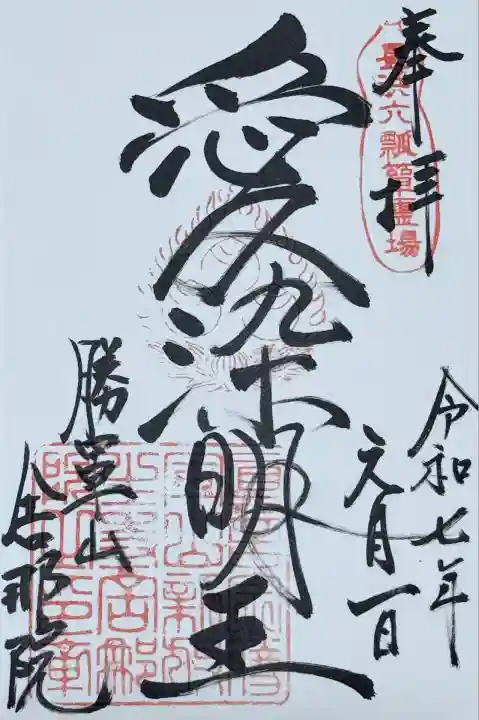 奉拝
長浜六瓢箪霊場
令和七年
元月一日
愛染明王
勝軍山
舎那院